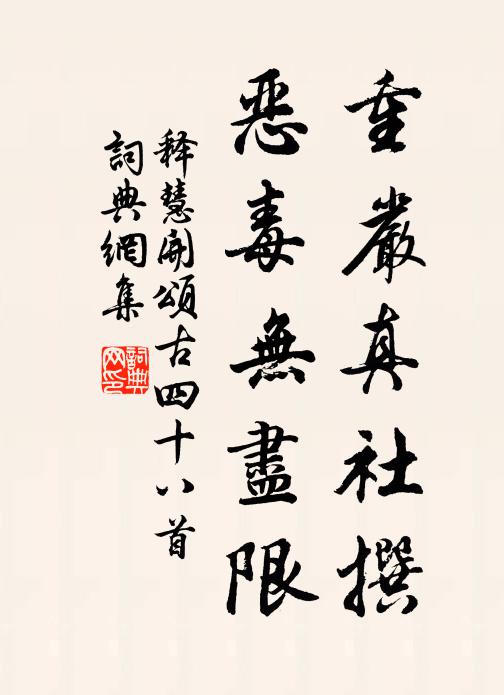 重嚴真社撰
惡毒無盡限
释慧開頌古四十八首
詞典網集
詞典网印